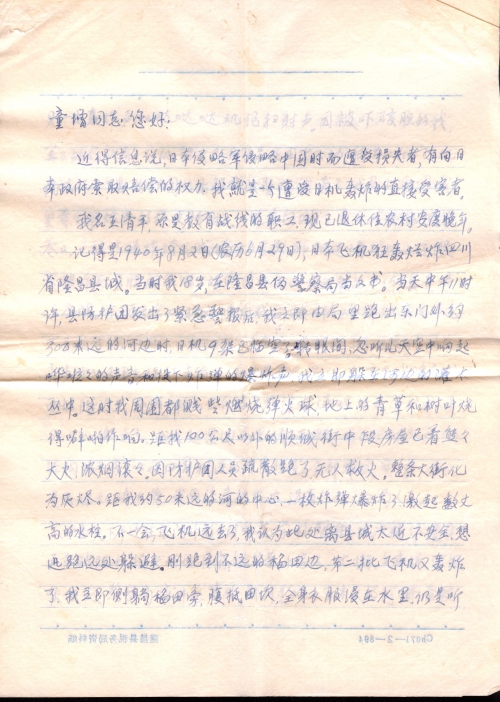 童增同志:您好!
近得信息说,日本侵略军侵略中国时而遭受损失者,有向日
本政府索取赔偿的权力。我就是一个遭受日机轰炸的直接受害者。
我名王清平,原是教育战线的职工,现已退休住农村安度晚年。
记得是1940年8月2日(农历6月29日),日本飞机狂轰烂炸四川
省隆昌县城。当时我18岁,在隆昌县伪警察局当文书。当天中午11时
许,县防护团发出了紧急警报后,我立即由局里跑出东门外约
300米远的河边时,日机9架已临空了。转眼间,忽听山天空中响起
哗啦々的声音和接下炸弹的爆炸声,我立即躲在河边的灌木
丛中。这时我周围都溅些燃烧弹火球,地上的青草和树叶烧
得噼啪作响。距我100公尺以外的顺城街中段房屋已着熊々
大火,浓烟滚々。因防护团人员疏散跑了,无人救火。整条大街化
为灰烬。距我约50米远的河的中心,一枚炸弹爆炸了,激起数丈
高的水柱。不一会,飞机远去了,我认为此处离县城太近不安全,想
迅跑远处躲避。刚跑到不远的稻田边,第二批飞机又轰炸
了,我立即侧躺稻田旁,腹抵田坎,全身衣服浸在水里,仍是听